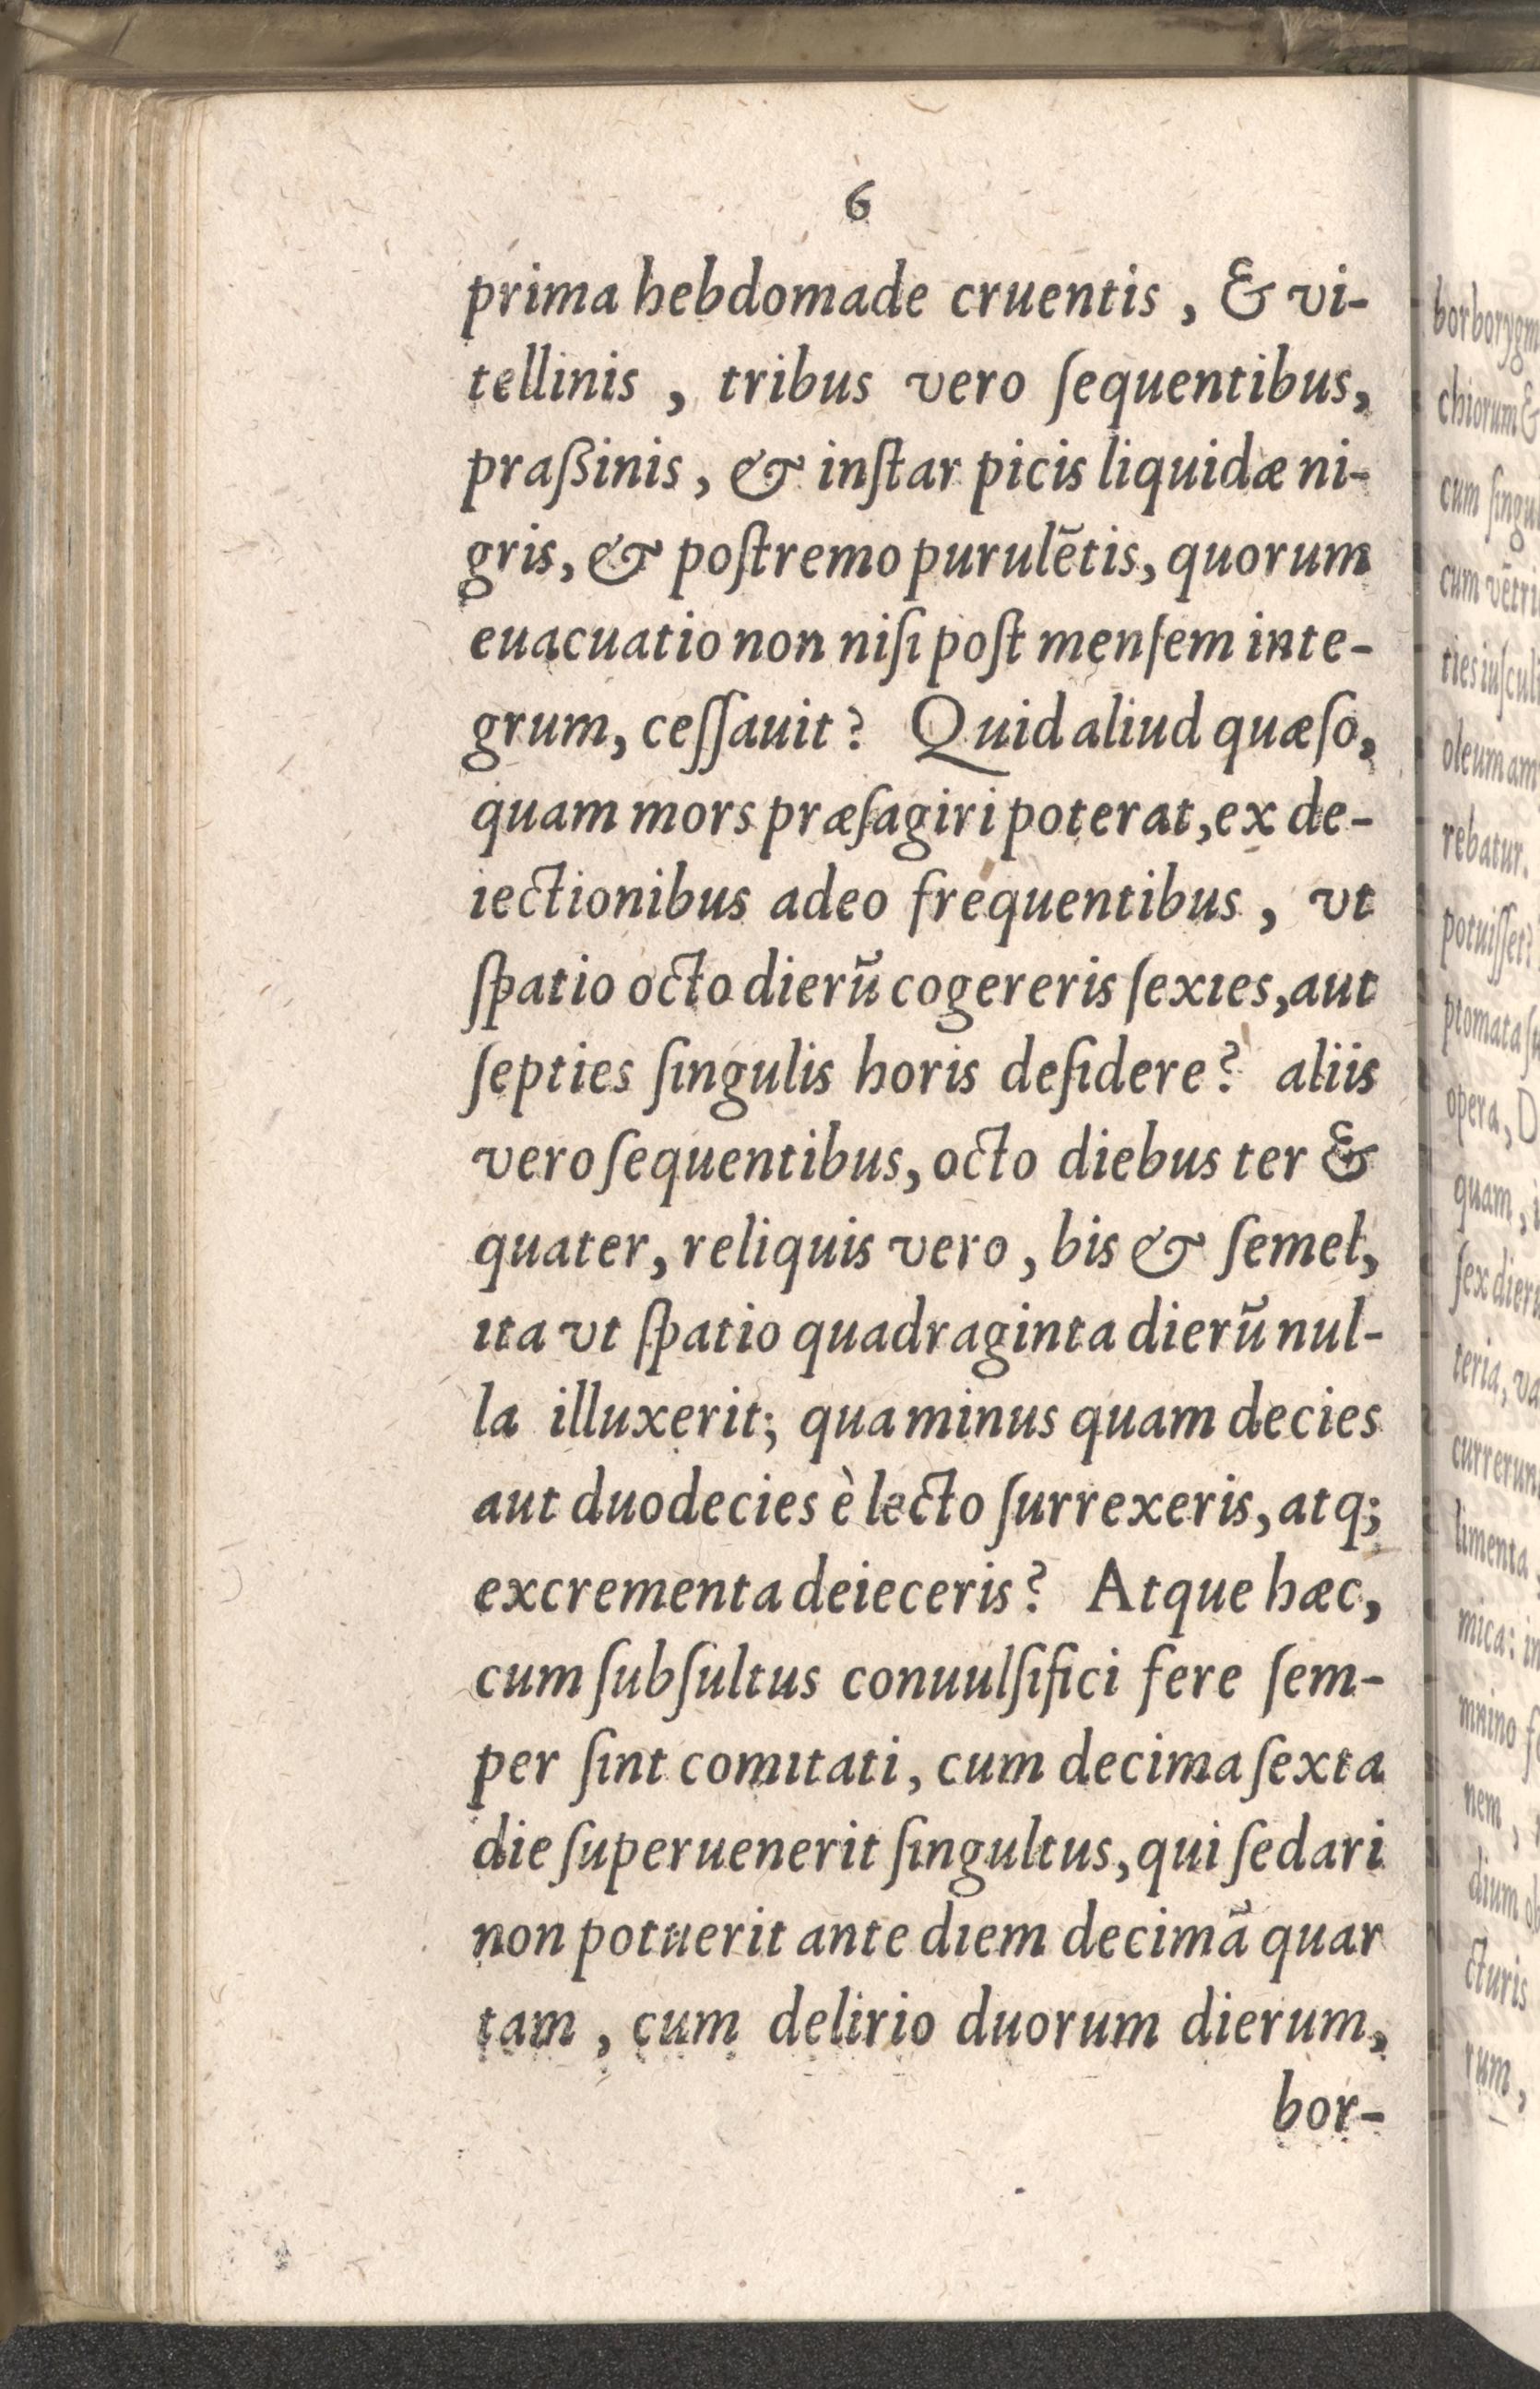 6
prima hebdomade cruentis, & vi-
tellinis, tribus vero ſequentibus,
praßinis, & inſtar picis liquidæ ni-
gris, & poſtremo purulẽtis, quorum
euacuatio non niſi poſt menſem inte-
grum, ceſſauit? Quid aliud quæſo,
quam mors præſagiri poterat, ex de-
iectionibus adeo frequentibus, vt
ſpatio octo dierũ cogereris ſexies, aut
ſepties ſingulis horis deſidere? aliis
vero ſequentibus, octo diebus ter &
quater, reliquis vero, bis & ſemel,
ita vt ſpatio quadraginta dierũ nul-
la illuxerit; qua minus quam decies
aut duodecies è lecto ſurrexeris, atq;
excrementa deieceris? Atque hæc,
cum ſubſultus conuulſifici fere ſem-
per ſint comitati, cum decima ſexta
die ſuperuenerit ſingultus, qui ſedari
non potuerit ante diem decimã quar
tam, cum delirio duorum dierum,
bor-
borygm
chiorum &
cum ſingul
cum vẽtri
ties iuſcul
oleum am
rebatur.
potuiſſet?
ptomata ſ
opera, D
quam, i
ſex dier
teria, va
currerun
limenta
mica: in
mnino ſ
nem,
dium ob
cturis
rum,